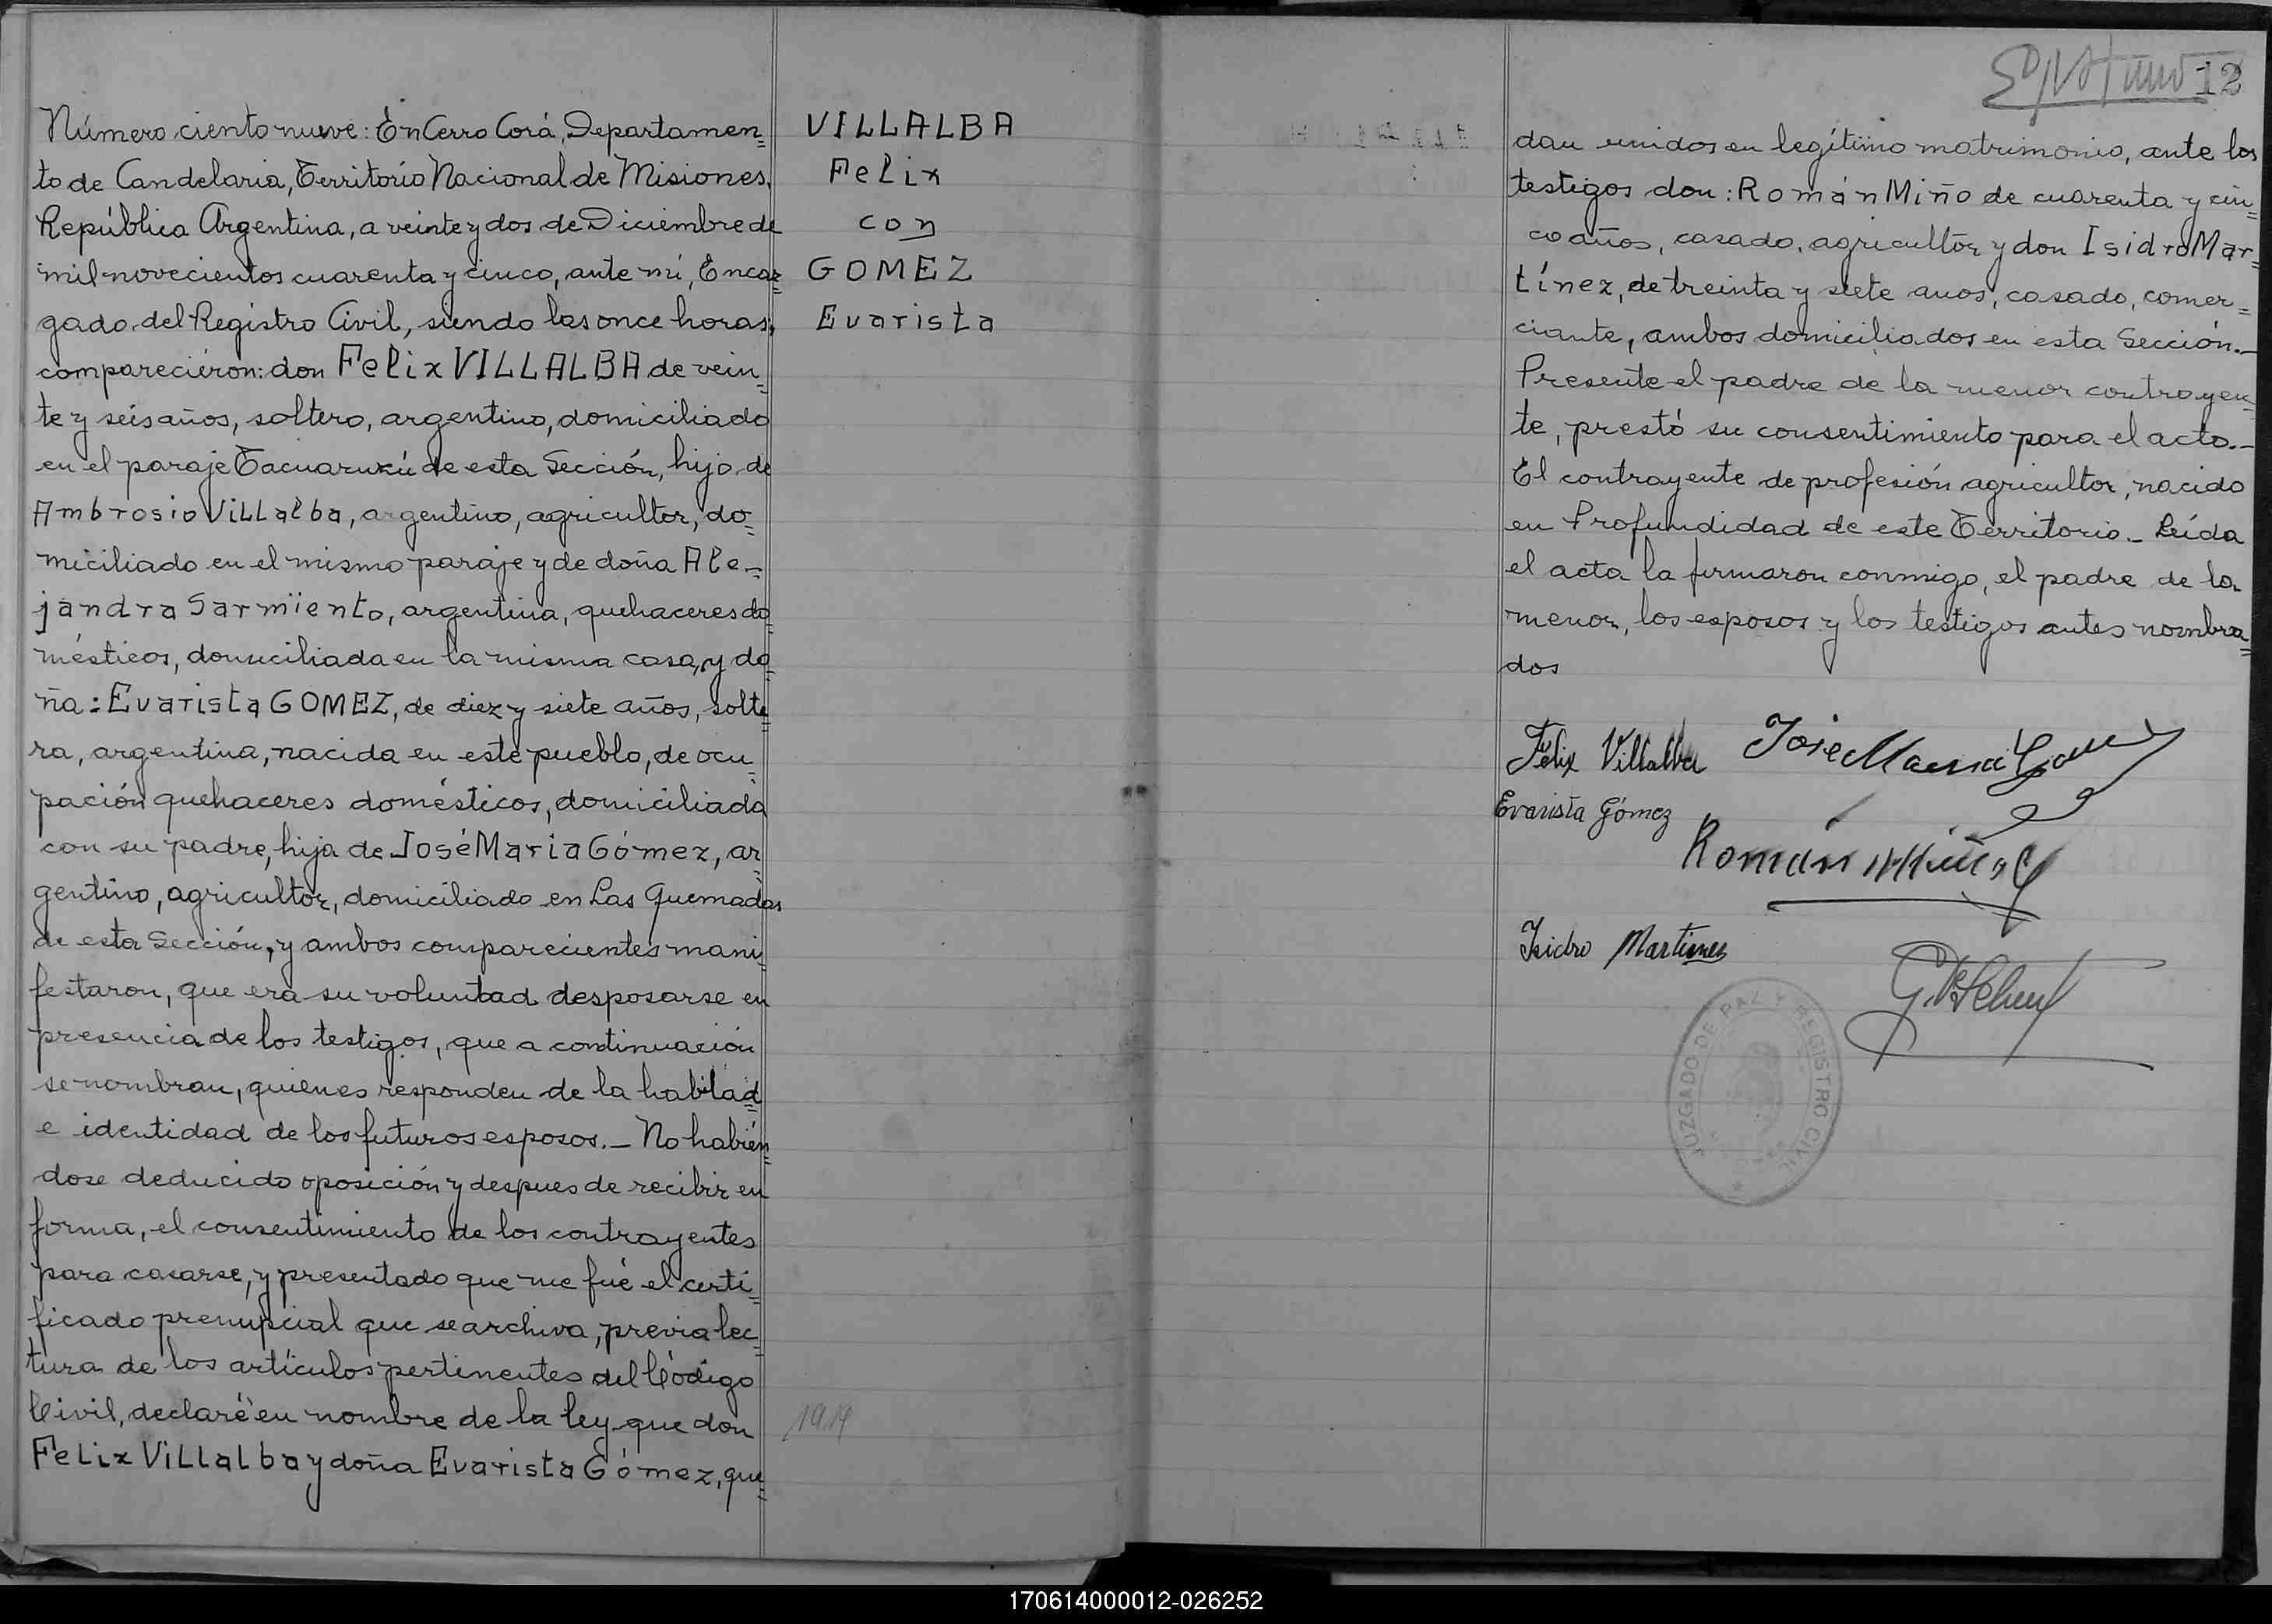 Número ciento nueve: En Cerro Corá, Departamen=
to de Candelaria, Territorio Nacional de Misiones,
República Argentina, a veinte y dos de Diciembre de
mil novecientos cuarenta y cinco, ante mí, Encar=
gado del Registro Civil, siendo las once horas,
comparecieron: don Felix VILLALBA de vein=
te y seis años, soltero, argentino, domiciliado
en el paraje Tacuaruzú de esta Sección, hijo de
Ambrosio Villalba, argentino, agricultor, do=
miciliado en el mismo paraje y de doña Ale=
jandra Sarmiento, argentina, quehaceres do=
mésticos, domiciliada en la misma casa, y do=
ña: Evarista GOMEZ, de diez y siete años, solte
ra, argentina, nacida en este pueblo, de ocu=
pación quehaceres domésticos, domiciliada
con su padre, hija de José Maria Gómez, ar=
gentino, agricultor, domiciliado en Las Quemadas
de esta Sección, y ambos comparecientes mani=
festaron, que era su voluntad desposarse en
presencia de los testigos, que a continuación
se nombran, quienes responden de la habilad
e identidad de los futuros esposos.- No habién=
dose deducido oposición y despues de recibir en
forma, el consentimiento de los contrayentes
para casarse, y presentado que me fué el certi=
ficado prenupcial que se archiva, previa lec=
tura de los artículos pertinentes del Código
Civil, declaré en nombre de la ley que don
Felix Villalba y doña Evarista Gómez, que=
VILLALBA
Felix
con
GOMEZ
Evarista
1919
12
dan unidos en legítimo matrimonio, ante los
testigos don: Román Miño de cuarenta y cin=
co años, casado, agricultor y don Isidro Mar=
tínez, de treinta y siete anos, casado, comer=
ciante, ambos domiciliados en esta Sección.-
Presente el padre de la menor contrayen=
te, prestó su consentimiento para el acto.-
El contrayente de profesión agricultor, nacido
en Profundidad de este Territorio.- Leída
el acta la firmaron conmigo, el padre de la
menor, los esposos y los testigos antes nombra=
dos
Félix Villalba Jose Maria Gomez
Evarista Gómez
Román Miño
Isidro Martines
JUZGADO DE PAZ Y REGISTRO CIVIL
170614000012-026252